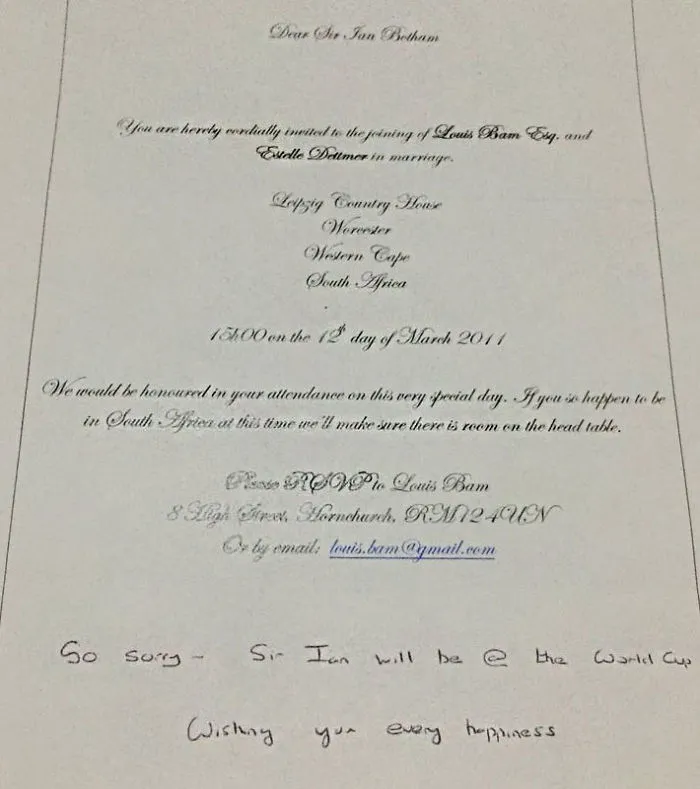 Dear Sir Ian Botham
You are hereby cordially invited to the joining of Louis Bam Esq. and
Estelle Dettmer in marriage.
Leipzig Country House
Worcester
Western Cape
South Africa
15h00 on the 12th day of March 2011
We would be honoured in your attendance on this very special day. If you so happen to be
in South Africa at this time we'll make sure there is room on the head table.
Please RSVP to Louis Bam
8 High Street, Hornchurch, RM12 4UN
Or by email: louis.bam@gmail.com
So sorry - Sir Ian will be @ the World Cup
Wishing you every happiness